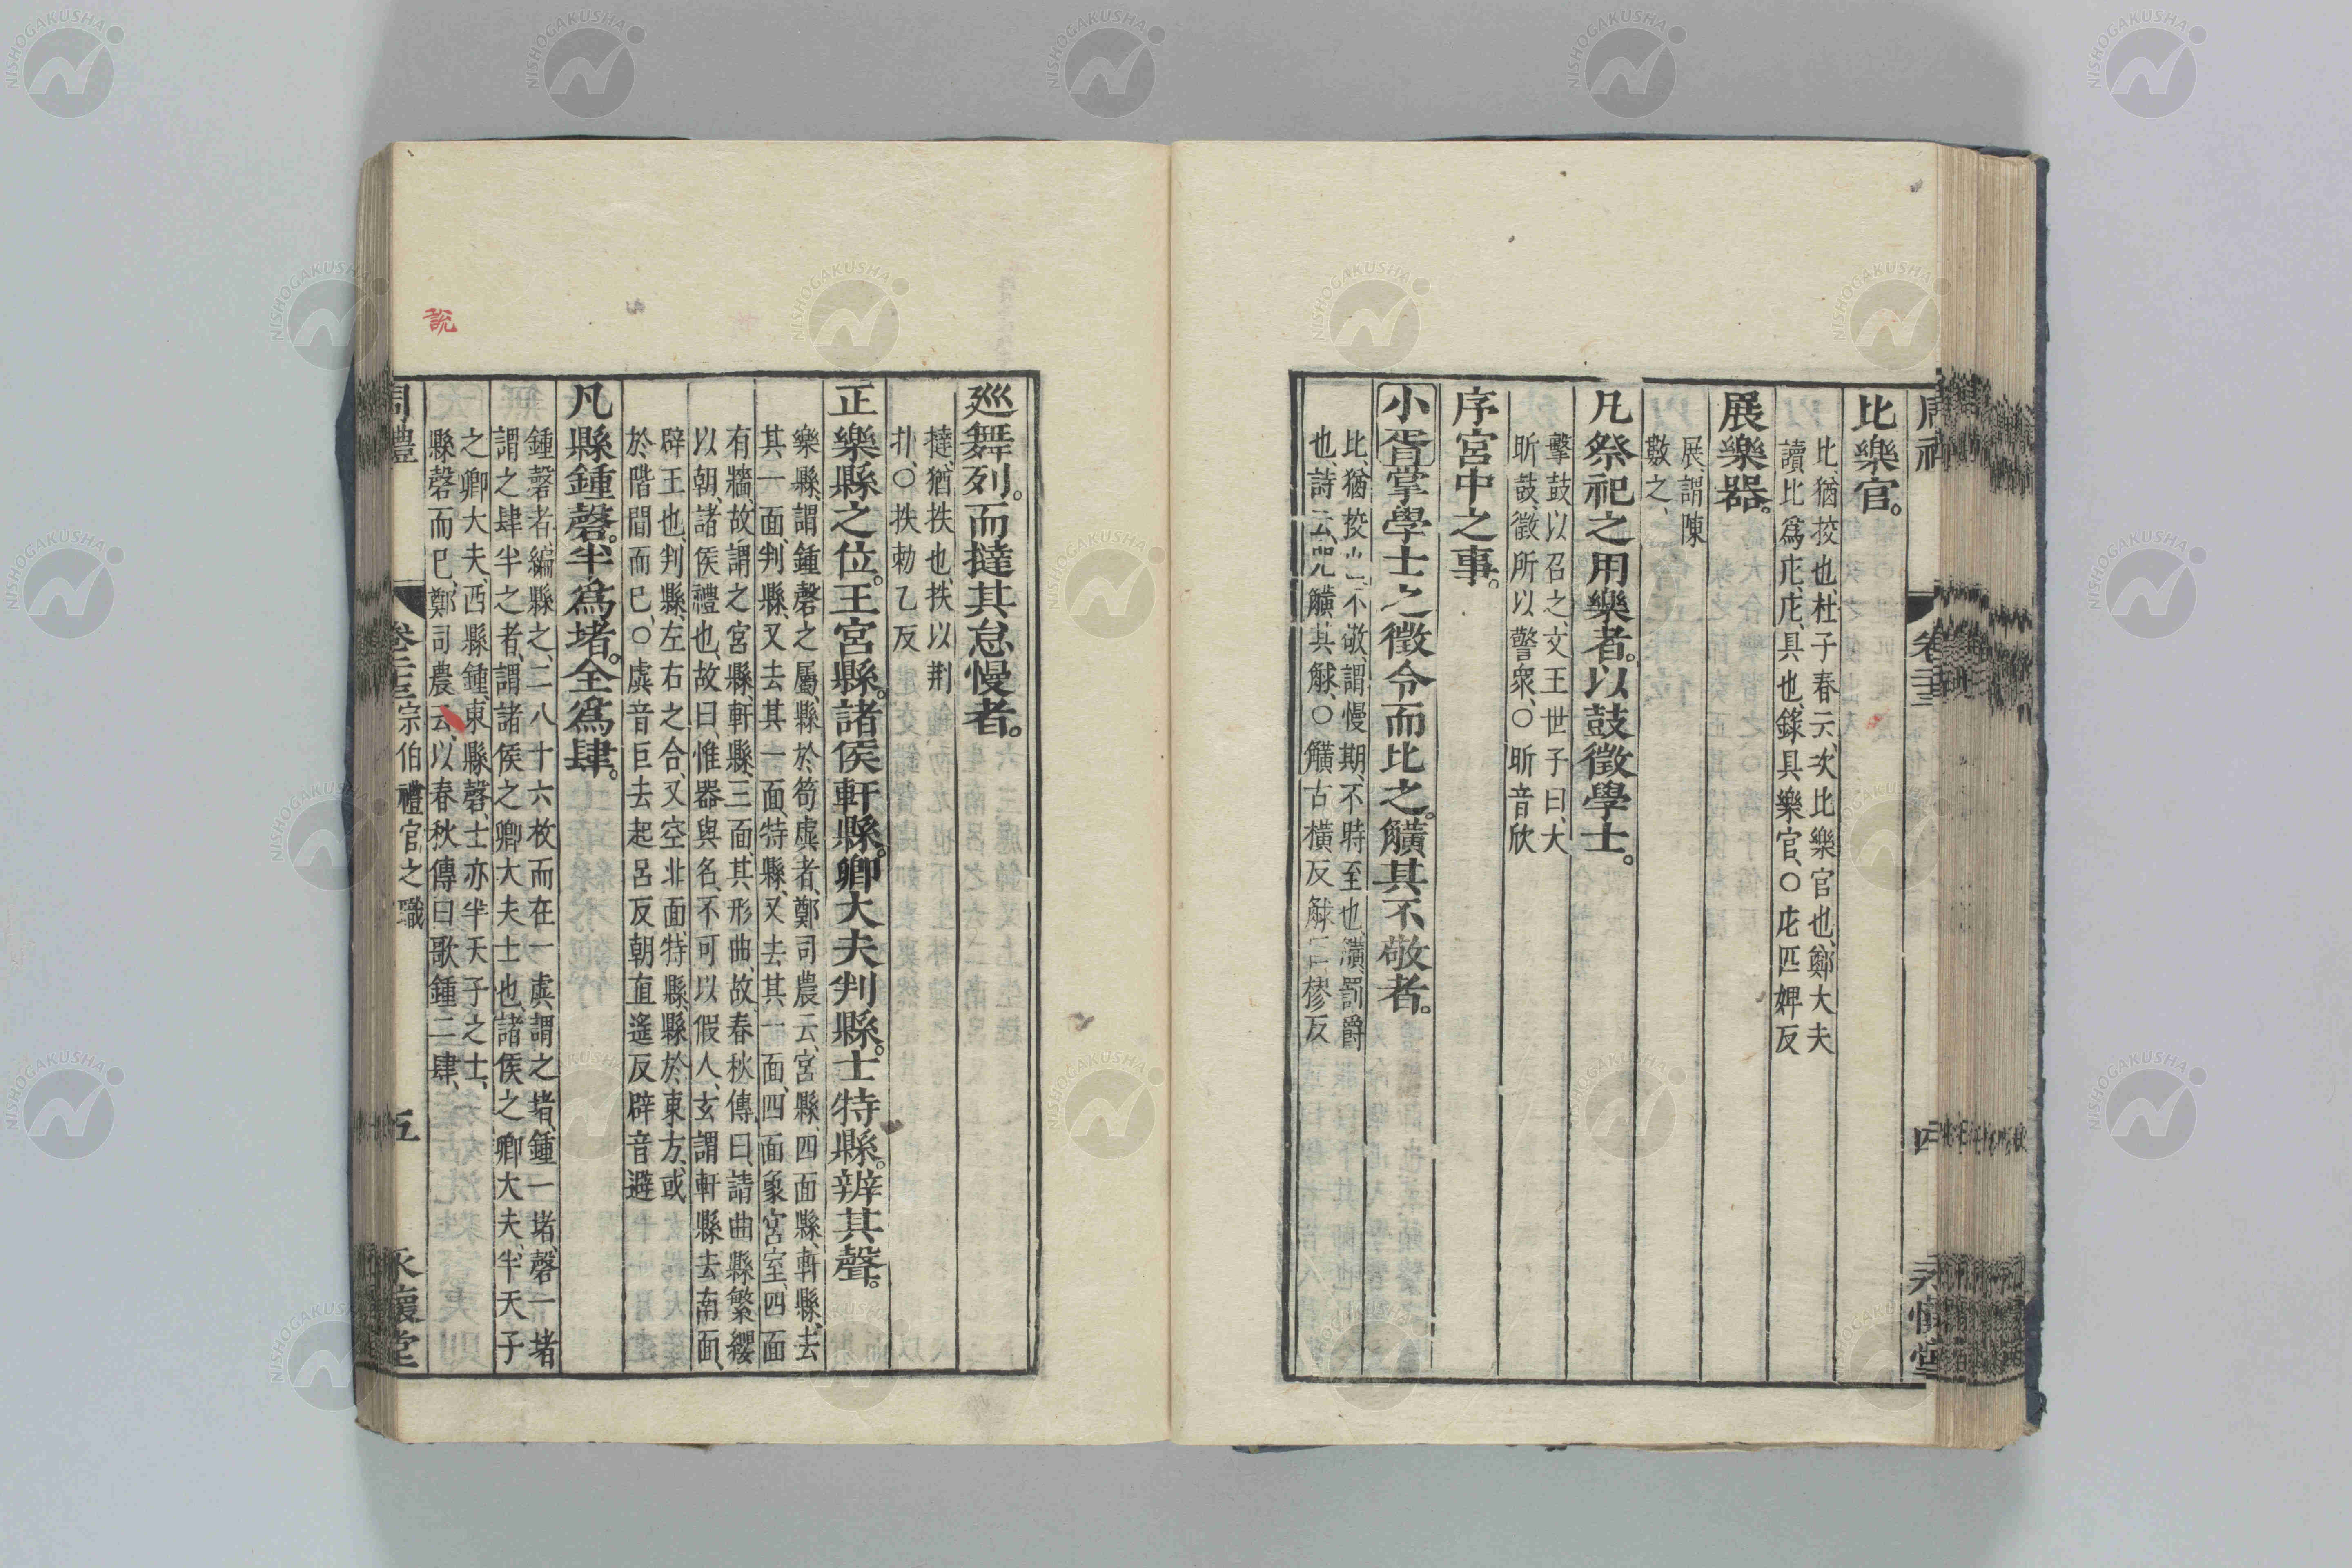 比樂官。
比、猶挍也、杜子春云、次比樂官也、鄭大夫
讀比爲庀、庀、具也、錄具樂官、○庀匹婢反
展樂器。
展、謂陳
數之、
凡祭祀之用樂者。以鼓徵學士。
擊鼓以召之、文王世子曰、大
昕鼓、徵所以警衆、○昕音欣
序宮中之事。
小胥掌學士之徵令而比之。觵其不敬者。
比、猶挍也、不敬謂慢期、不時至也、觵、罰爵
也、詩云、兕觵其觩、○觵古橫反觩音樛反
卷二十三
四
永懷堂
巡舞列。而撻其怠慢者。
撻、猶抶也、抶以荆
扑、○抶勑乙反
正樂縣之位。王宮縣。諸侯軒縣。卿大夫判縣。士特縣。辨其聲。
樂縣、謂鍾磬之屬、縣於筍虡者、鄭司農云、宮縣、四面縣、軒縣、去
其一面、判縣、又去其一面、特縣、又去其一面、四面象宮室、四面
有牆、故謂之宮縣、軒縣、三面、其形曲、故春秋傳曰、請曲縣繁纓
以朝、諸侯禮也、故曰、惟器與名、不可以假人、玄謂軒縣去南面、
辟王也、判縣、左右之合、又空北面、特縣、縣於東方、或
於階間而已、○虡音巨去起呂反朝直遙反辟音避
凡縣鍾磬。半爲堵。全爲肆。
鍾磬者、編縣之、二八十六枚而在一虡、謂之堵、鍾一堵、磬一堵
謂之肆、半之者、謂諸侯之卿大夫士也、諸侯之卿大夫、半天子
之卿大夫、西縣鍾、東縣磬、士亦半天子之士、
縣磬而已、鄭司農云、以春秋傳曰歌鍾二肆、
說
周禮
卷二十三宗伯禮官之職
五
永懷堂
NISHOGAKUSHA